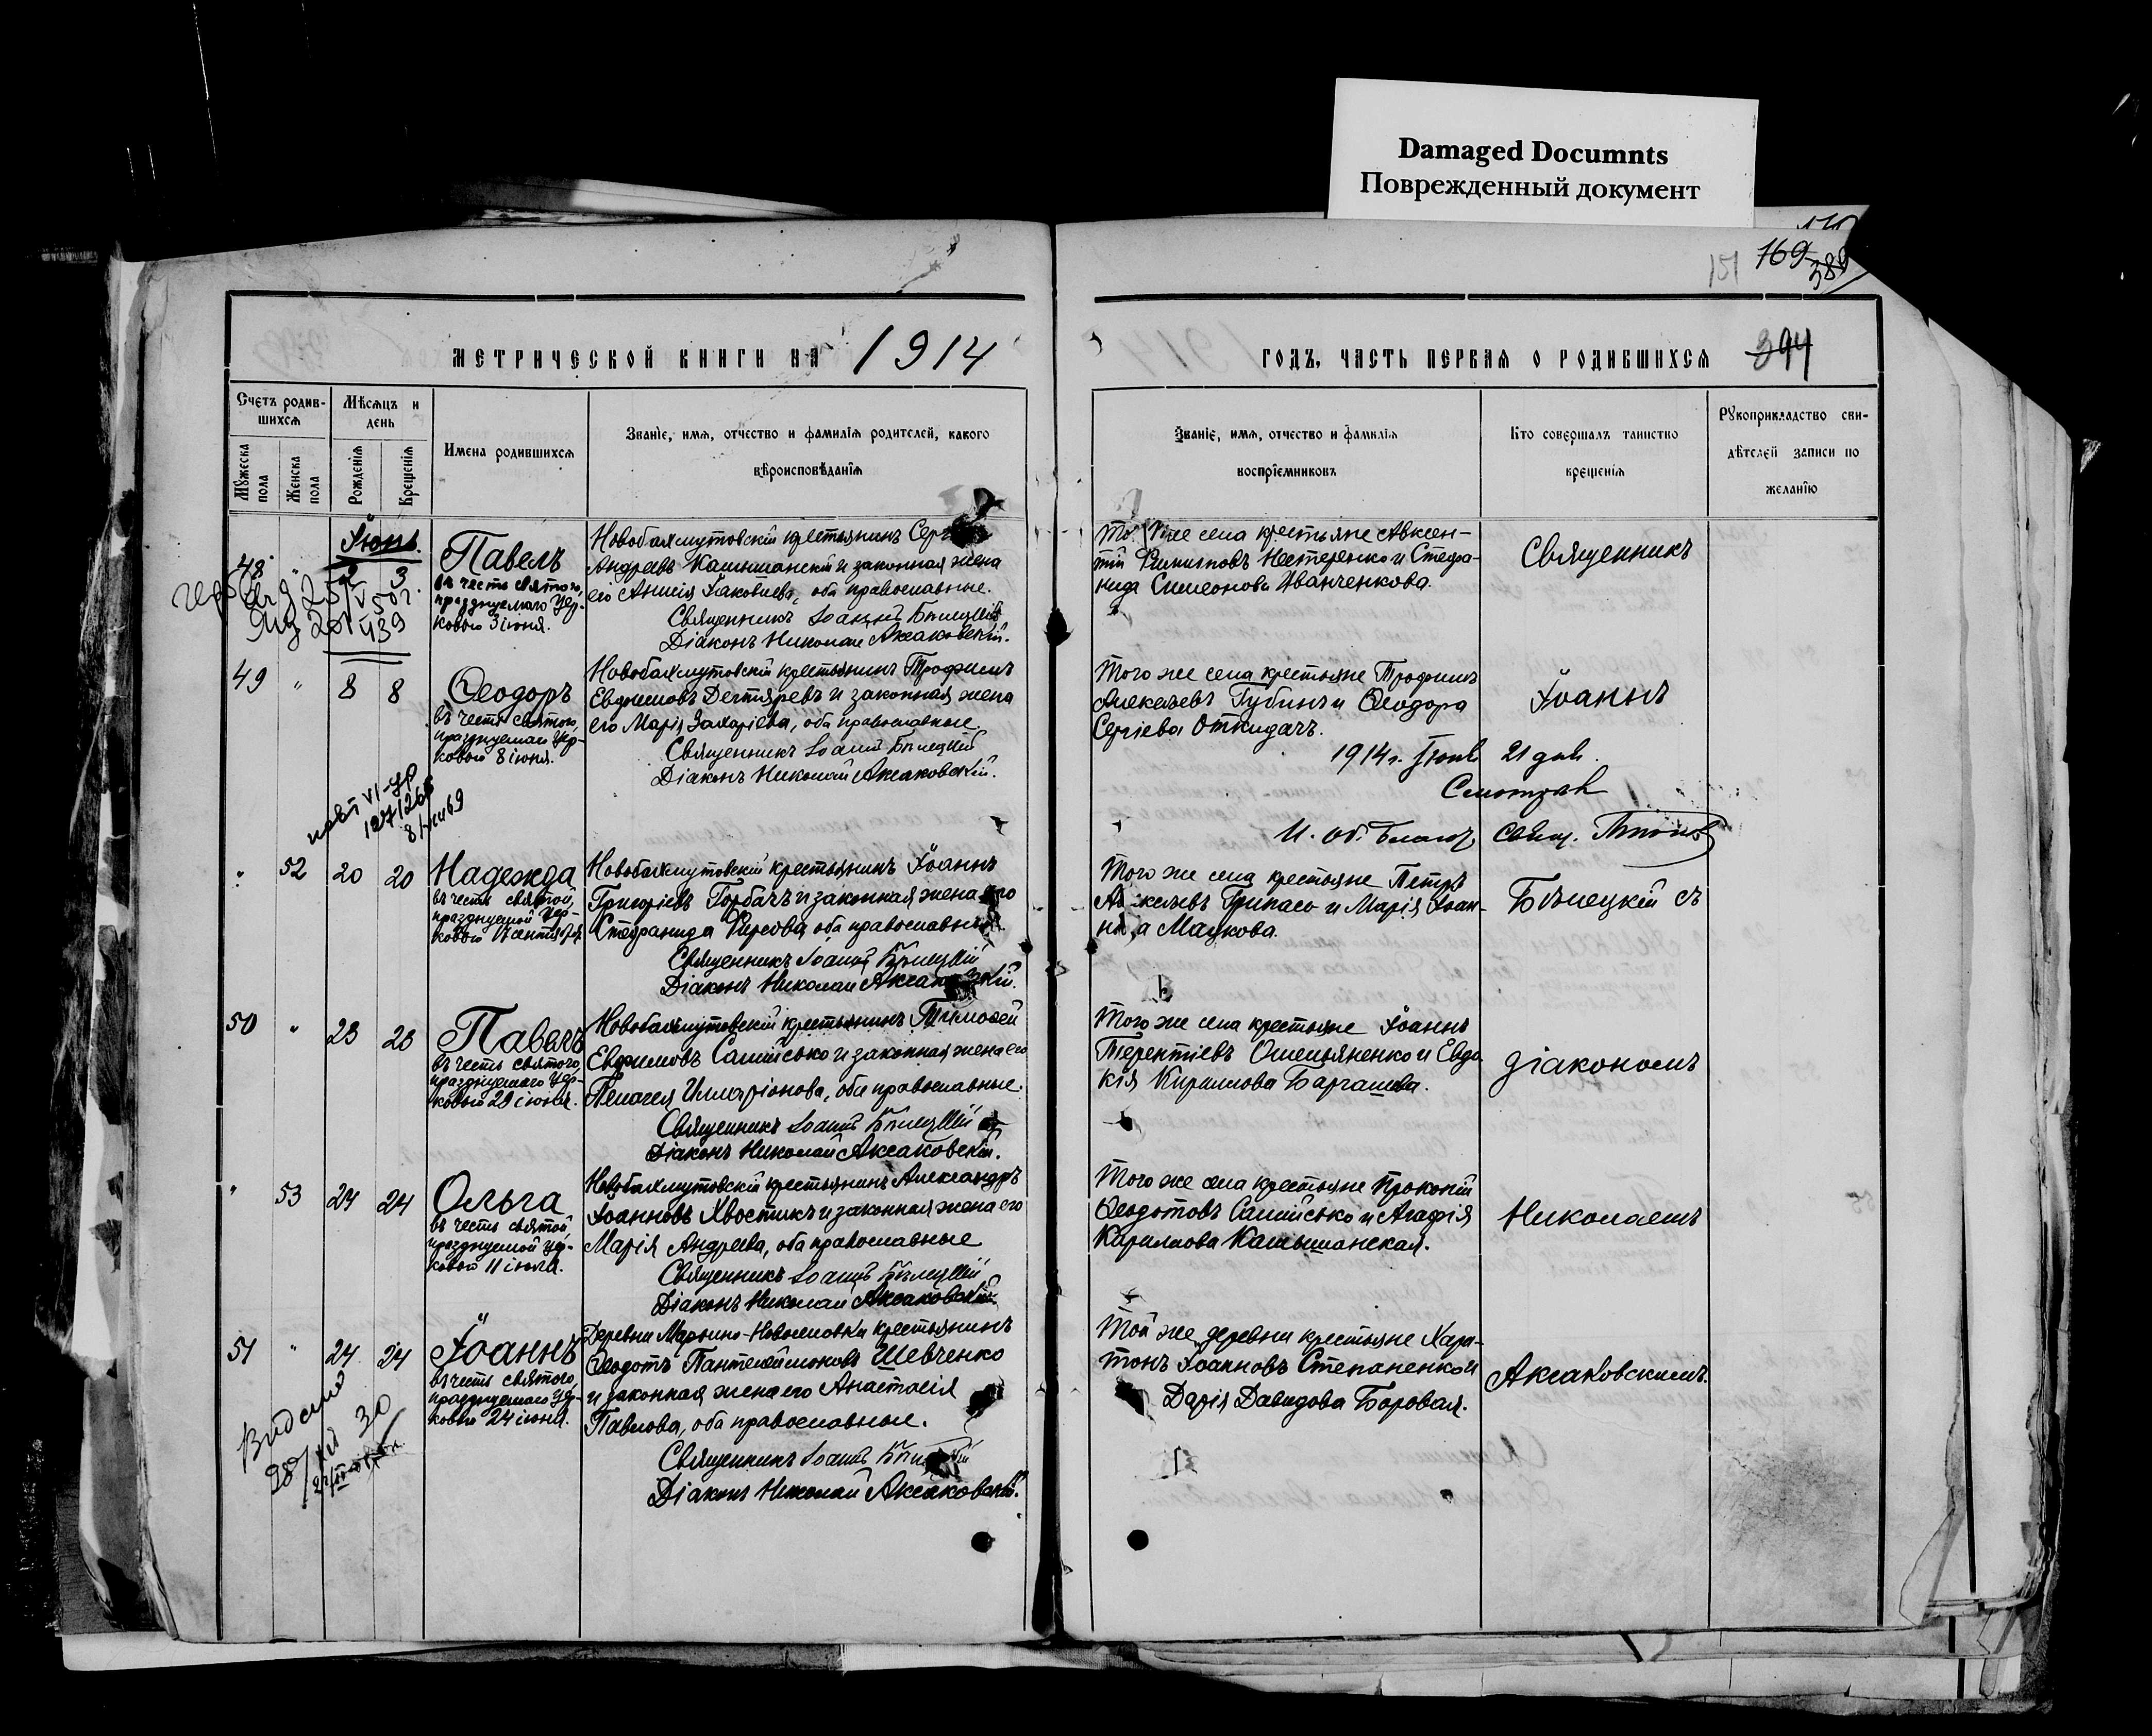 Damaged Documnts
Поврежденный документ
151 169
МЕТРИЧЕСКОЙ КНИГИ НА 1914
ГОДЪ, ЧАСТЬ ПЕРВАЯ О РОДИВШИХСЯ 394
Счетъ родив-
шихся
Мѣсяцъ и
день
Мужеска
пола
Женска
пола
Рожденія
Крещенія
Имена родившихся
Званіе, имя, отчество и фамилія родителей, какого
вѣроисповѣданія
Званіе, имя, отчество и фамилія
воспріемниковъ
Кто совершалъ таинство
крещенія
Рукоприкладство сви-
дѣтелей записи по
желанію
Іюнь.
48 " 3
Павелъ
въ честь святого,
празднуемаго Цер-
ковью 3 іюня.
Новобахмутовскій крестьянинъ
Андреевъ Камышанскій и законная жена
его Анисія Іаковлева, оба православные.
Священникъ Іоаннъ Бѣлецкій
Діаконъ Николай Аксаковскій.
же села крестьяне Авксен-
тій Филипповъ Нестеренко и Стефа-
нида Симеонова Иванченкова.
Священникъ
49 " 8 8
Ѳеодоръ
въ честь святого,
празднуемаго Цер-
ковью 8 іюня.
Новобахмутовскій крестьянинъ Трофимъ
Евфимовъ Дегтяревъ и законная жена
его Марія Захаріева, оба православные.
Священникъ Іоаннъ Бѣлецкій
Діаконъ Николай Аксаковскій.
Того же села крестьяне Трофимъ
Алексѣевъ Губинъ и Ѳеодора
Сергіева Откидачъ.
Іоаннъ
1914 г. Іюня 21 дня
Смотрѣлъ
И. об. Благоч. Свящ.
127/266
" 52 20 20
Надежда
въ честь святой,
празднуемой Цер-
ковью 17 сентября.
Новобахмутовскій крестьянинъ Іоаннъ
Григоріевъ Горбачъ и законная жена его
Стефанида Фирсова, оба православные.
Священникъ Іоаннъ Бѣлецкій
Діаконъ Николай
Того же села крестьяне Петръ
Алексѣевъ Грипась и Марія Іоан-
нова Мацкова.
Бѣлецкій съ
50 " 23 23
Павелъ
въ честь святого,
празднуемаго Цер-
ковью 29 іюня.
Новобахмутовскій крестьянинъ Тимоѳей
Евфимовъ Самійсько и законная жена его
Пелагея Илларіонова, оба православные.
Священникъ Іоаннъ Бѣлецкій
Діаконъ Николай Аксаковскій.
Того же села крестьяне Іоаннъ
Терентіевъ Омельяненко и Евдо-
кія Кириллова
діакономъ
" 53 24 24
Ольга
въ честь святой,
празднуемой Цер-
ковью 11 іюля.
Новобахмутовскій крестьянинъ Александръ
Іоанновъ Хвостикъ и законная жена его
Марія Андреева, оба православные
Священникъ Іоаннъ Бѣлецкій
Діаконъ Николай Аксаковскій
Того же села крестьяне Прокопій
Ѳеодотовъ Самійсько и Агафія
Кириллова Камышанская.
Николаемъ
51 " 24 24
Іоаннъ
въ честь святого,
празднуемаго Цер-
ковью 24 іюня.
Деревни Марьино-Новоселовки крестьянинъ
Ѳеодотъ Пантелеймоновъ Шевченко
и законная жена его Анастасія
Павлова, оба православные.
Священникъ Іоаннъ
Діаконъ Николай Аксаковскій.
Той же деревни крестьяне Хари-
тонъ Іоанновъ Степаненко и
Дарія Давидова Боровая.
Аксаковскимъ.